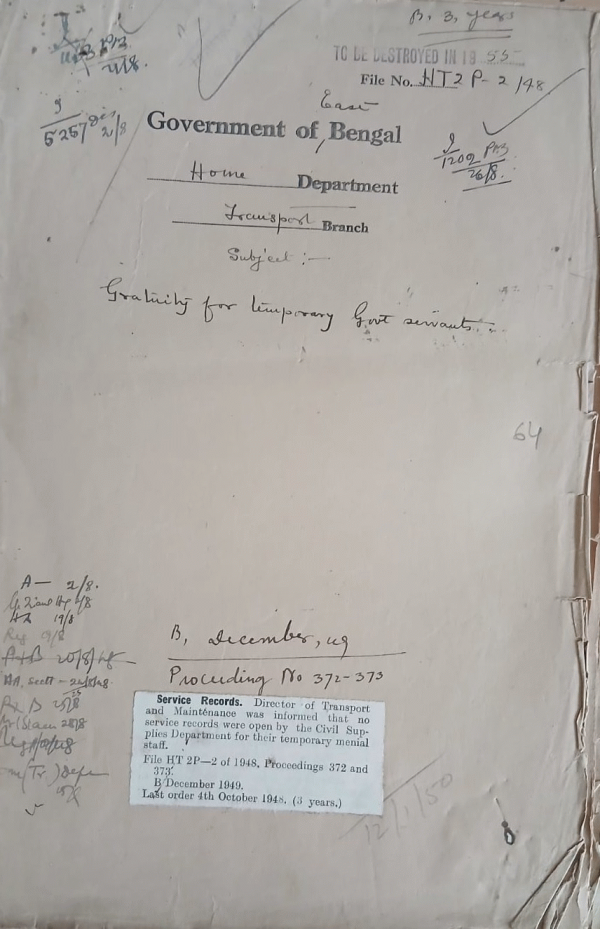 B. 3, years
TO BE DESTROYED IN 19 55
File No. HT2 P-2/48
21/8.
5257
2/8
East
Government of, Bengal
1202
26/8.
Home Department
Transport Branch
Subject :-
Gratuity for temporary Govt servants.
64
A— 2/8.
19/8
20/8/48
B, December, 49
Proceeding No 372-373
Service Records. Director of Transport
and Maintenance was informed that no
service records were open by the Civil Sup-
plies Department for their temporary menial
staff.
File HT 2P—2 of 1948, Proceedings 372 and
373.
B December 1949.
Last order 4th October 1948. (3 years.)
12/1/50